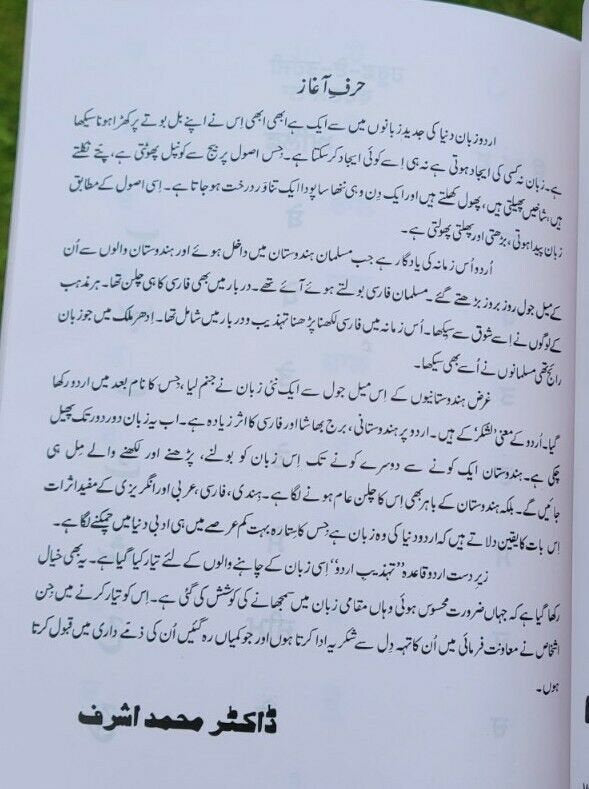 حرفِ آغاز
اردو زبان دنیا کی جدید زبانوں میں سے ایک ہے ابھی ابھی اِس نے اپنے بل بوتے پر کھڑا ہونا سیکھا
ہے۔ زبان نہ کسی کی ایجاد ہوتی ہے نہ ہی اِسے کوئی ایجاد کرسکتا ہے۔ جس اصول پر بیج سے کونپل پھوٹتی ہے، پتے نکلتے
ہیں، شاخیں پھیلتی ہیں، پھول کھلتے ہیں اور ایک دِن وہی ننھا سا پودا ایک تناور درخت ہوجاتا ہے۔ اِسی اصول کے مطابق
زبان پیدا ہوتی، بڑھتی اور پھلتی پھولتی ہے۔
اُردو اُس زمانہ کی یادگار ہے جب مسلمان ہندوستان میں داخل ہوئے اور ہندوستان والوں سے اُن
کے میل جول روز بروز بڑھتے گئے۔ مسلمان فارسی بولتے ہوئے آئے تھے۔ دربار میں بھی فارسی کا ہی چلن تھا۔ ہر مذہب
کے لوگوں نے اِسے شوق سے سیکھا۔ اُس زمانہ میں فارسی لکھنا پڑھنا تہذیب و دربار میں شامل تھا۔ اِدھر ملک میں جو زبان
رائج تھی مسلمانوں نے اُسے بھی سیکھا۔
غرض ہندوستانیوں کے اِس میل جول سے ایک نئی زبان نے جنم لیا، جس کا نام بعد میں اردو رکھا
گیا۔ اُردو کے معنی ’لشکر‘ کے ہیں۔ اردو پر ہندوستانی، برج بھاشا اور فارسی کا اثر زیادہ ہے۔ اب یہ زبان دور دور تک پھیل
چکی ہے۔ ہندوستان ایک کونے سے دوسرے کونے تک اِس زبان کو بولنے، پڑھنے اور لکھنے والے مِل ہی
جائیں گے۔ بلکہ ہندوستان کے باہر بھی اِس کا چلن عام ہونے لگا ہے۔ ہِندی، فارسی، عربی اور انگریزی کے مفید اثرات
اِس بات کا یقین دلاتے ہیں کہ اردو دنیا کی وہ زبان ہے جس کا ستارہ بہت کم عرصے میں ہی ادبی دنیا میں چمکنے لگا ہے۔
زیر دست اردو قاعدہ ’’تہذیب اردو‘‘ اِسی زبان کے چاہنے والوں کے لئے تیار کیا گیا ہے۔ یہ بھی خیال
رکھا گیا ہے کہ جہاں ضرورت محسوس ہوئی وہاں مقامی زبان میں سمجھانے کی کوشش کی گئی ہے۔ اِس کو تیار کرنے میں جِن
اشخاص نے معاونت فرمائی میں اُن کا تہہ دِل سے شکریہ ادا کرتا ہوں اور جو کمیاں رہ گئیں اُن کی ذمّے داری میں قبول کرتا
ہوں۔
ڈاکٹر محمد اشرف